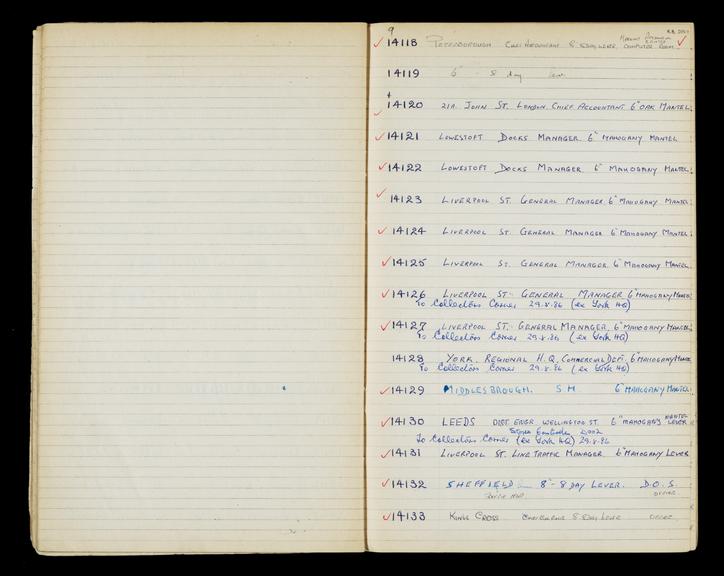 9
14118 PETERBOROUGH CHIEF ACCOUNTANT 8 8 DAY LEVER COMPUTER ROOM
14119 6" 8 day Lever
14120 21A. JOHN ST. LONDON. CHIEF ACCOUNTANT 6" OAK MANTEL
14121 LOWESTOFT DOCKS MANAGER 6" MAHOGANY MANTEL
14122 LOWESTOFT DOCKS MANAGER 6" MAHOGANY MANTEL
14123 LIVERPOOL ST. GENERAL MANAGER. 6" MAHOGANY MANTEL
14124 LIVERPOOL ST GENERAL MANAGER 6" MAHOGANY MANTEL
14125 LIVERPOOL ST. GENERAL MANAGER. 6" MAHOGANY MANTEL
14126 LIVERPOOL ST. GENERAL MANAGER 6" MAHOGANY MANTEL
To Collectors Corner 29.8.86 (ex York HQ)
14127 LIVERPOOL ST. GENERAL MANAGER. 6" MAHOGANY MANTEL
To Collectors Corner 29.8.86 (ex York HQ)
14128 YORK. REGIONAL H.Q. COMMERCIAL DEPT. 6" MAHOGANY MANTEL
To Collectors Corner 29.8.86 (ex York HQ)
14129 MIDDLESBROUGH. S M. 6" MAHOGANY MANTEL
14130 LEEDS DIST ENGR WELLINGTON ST. 6" MAHOGANY MANTEL LEVER
To Collectors Corner (ex York HQ) 29.8.86
14131 LIVERPOOL ST. LINE TRAFFIC MANAGER 6" MAHOGANY LEVER
14132 SHEFFIELD 8" - 8 DAY LEVER. D.O.S.
OFFICE
14133 KINGS CROSS 8 8 DAY LEVER OFFICE